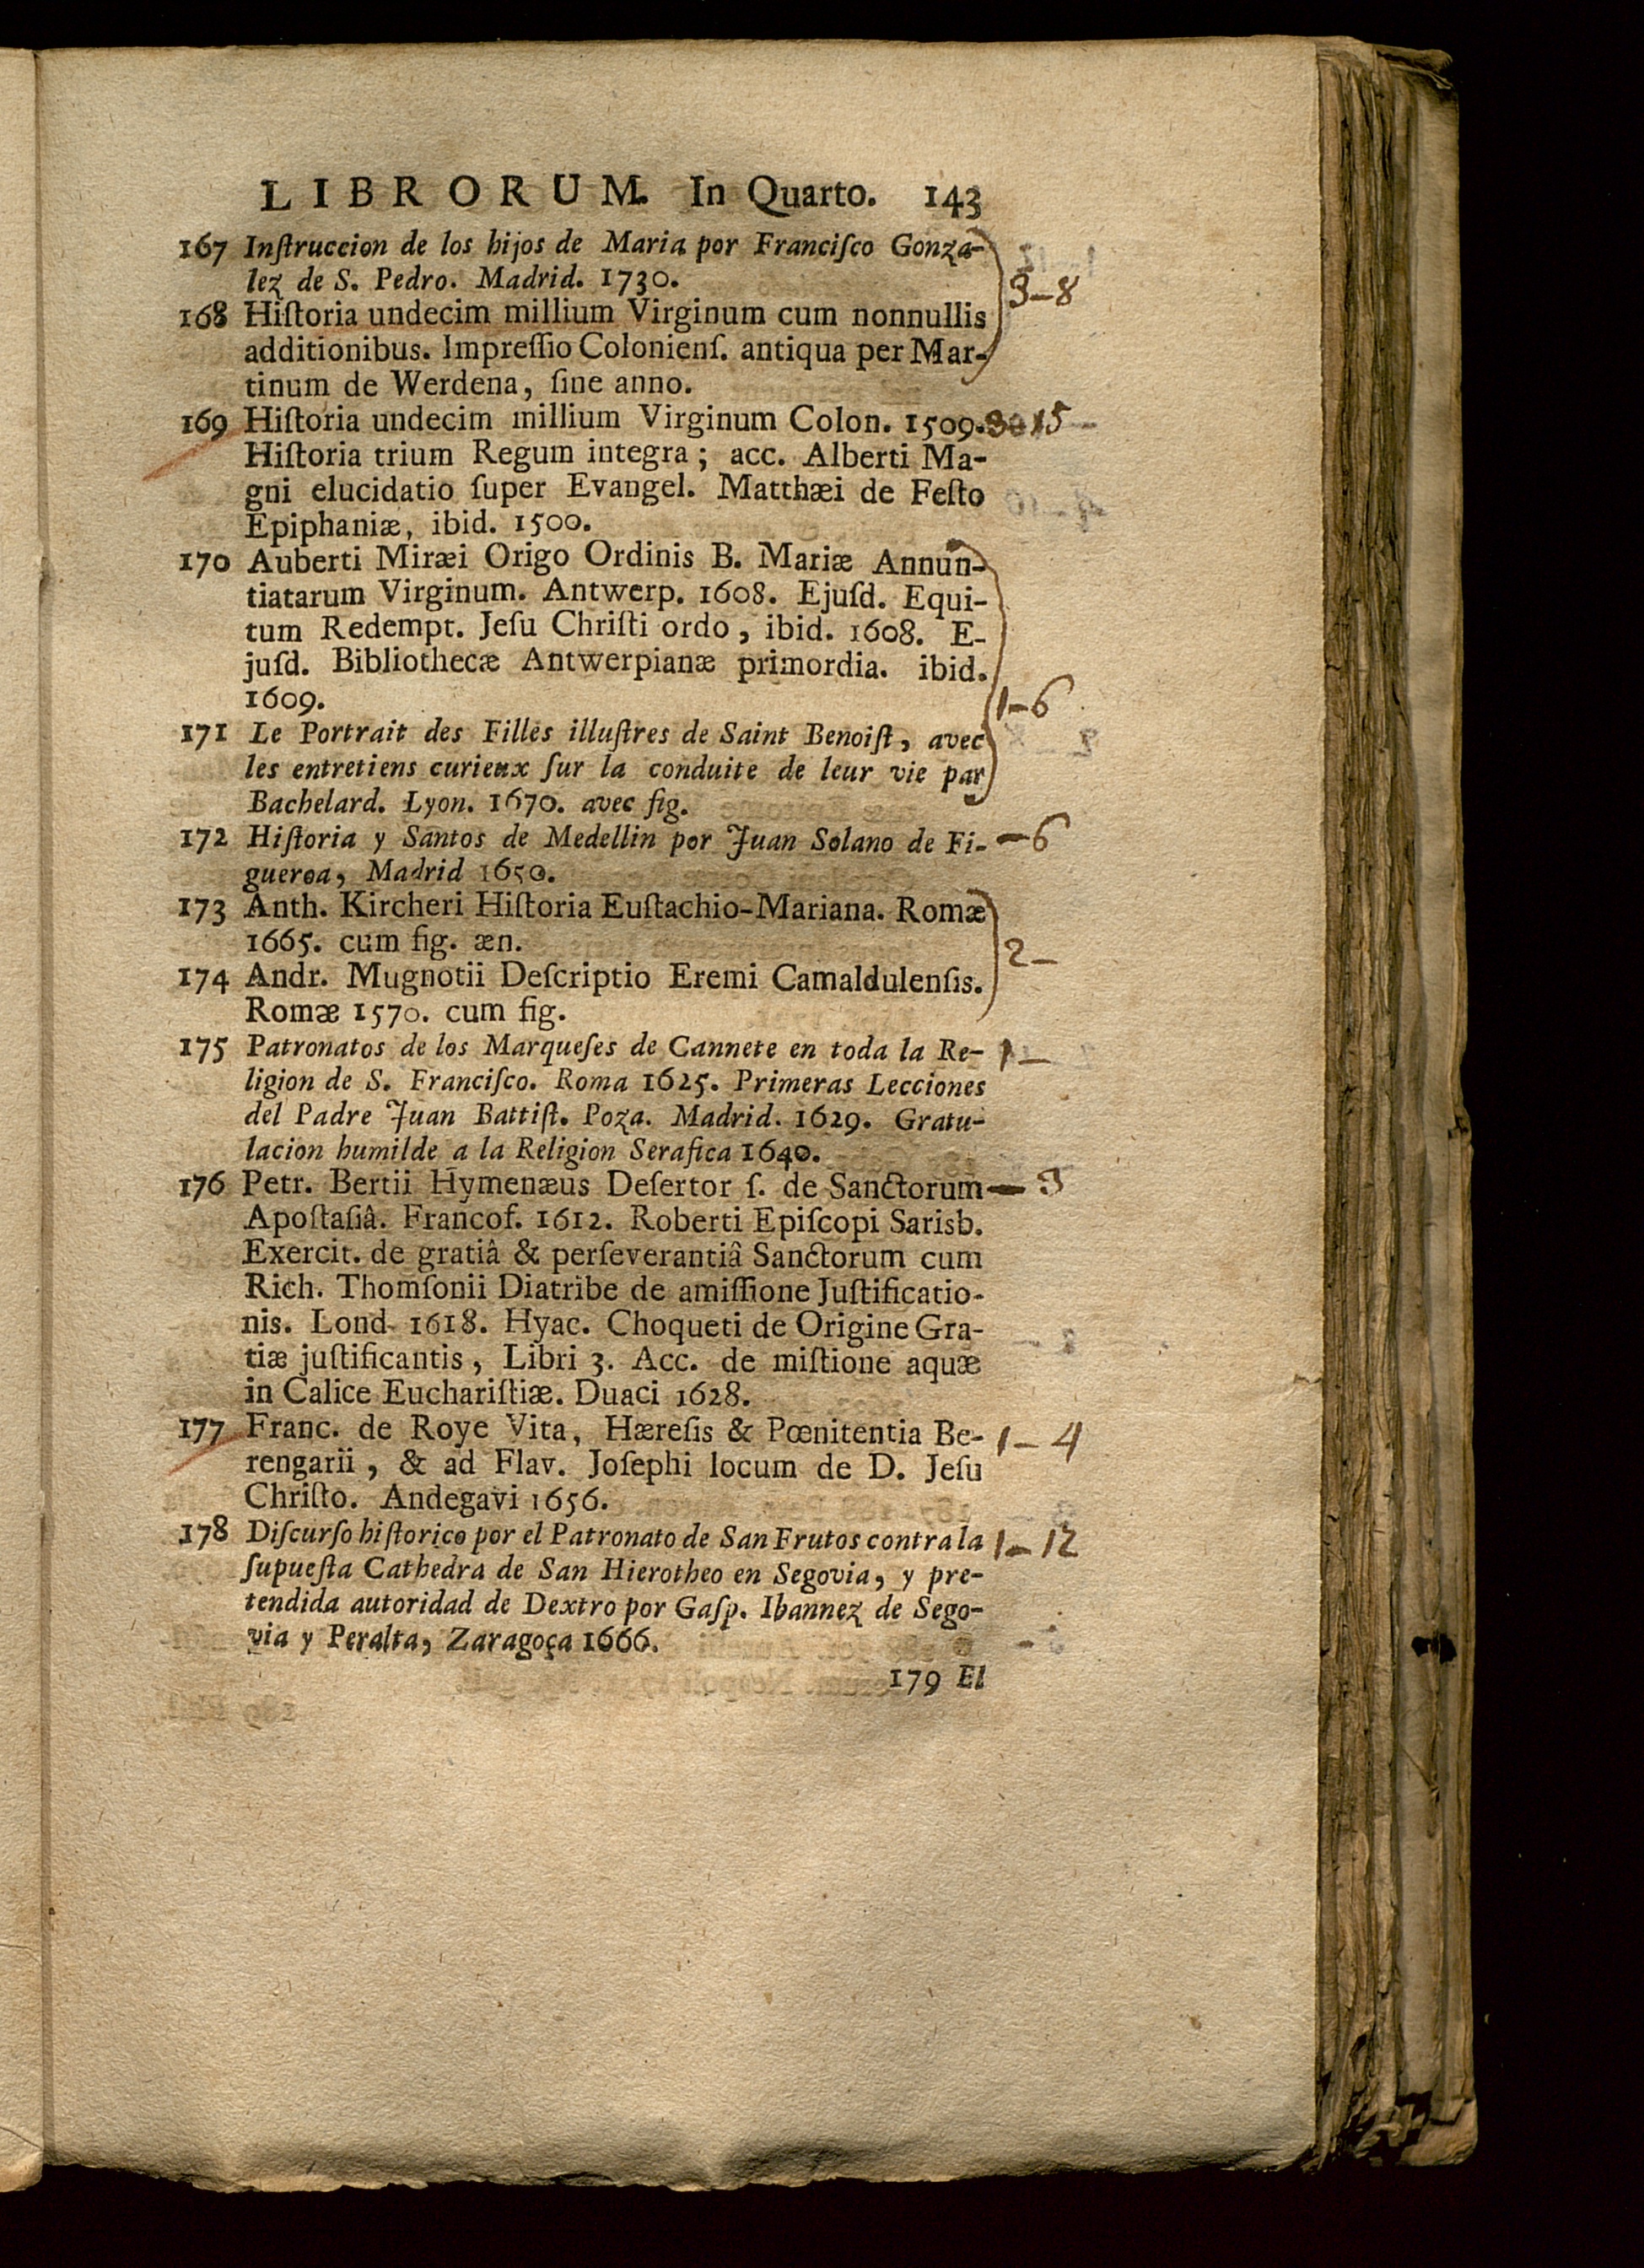 LIBRORUM. In Quarto. 143
167 Inſtruccion de los hijos de Maria por Franciſco Gonza-
lez de S. Pedro. Madrid. 1730.
3–8
168 Hiſtoria undecim millium Virginum cum nonnullis
additionibus. Impreſſio Colonienſ. antiqua per Mar-
tinum de Werdena, ſine anno.
169 Hiſtoria undecim millium Virginum Colon. 1509. 15
Hiſtoria trium Regum integra; acc. Alberti Ma-
gni elucidatio ſuper Evangel. Matthæi de Feſto
Epiphaniæ, ibid. 1500.
170 Auberti Miræi Origo Ordinis B. Mariæ Annun-
tiatarum Virginum. Antwerp. 1608. Ejuſd. Equi-
tum Redempt. Jeſu Chriſti ordo, ibid. 1608. E-
juſd. Bibliothecæ Antwerpianæ primordia. ibid.
1609.
1–6
171 Le Portrait des Filles illuſtres de Saint Benoiſt, avec
les entretiens curieux ſur la conduite de leur vie par
Bachelard. Lyon. 1670. avec fig.
172 Hiſtoria y Santos de Medellin por Juan Solano de Fi- –6
gueroa, Madrid 1650.
173 Anth. Kircheri Hiſtoria Euſtachio-Mariana. Romæ
1665. cum fig. æn.
2–
174 Andr. Mugnotii Deſcriptio Eremi Camaldulenſis.
Romæ 1570. cum fig.
175 Patronatos de los Marqueſes de Cannete en toda la Re- 1–
ligion de S. Franciſco. Roma 1625. Primeras Lecciones
del Padre Juan Battiſt. Poza. Madrid. 1629. Gratu-
lacion humilde a la Religion Serafica 1640.
176 Petr. Bertii Hymenæus Deſertor ſ. de Sanctorum – 3
Apoſtaſiâ. Francof. 1612. Roberti Epiſcopi Sarisb.
Exercit. de gratiâ & perſeverantiâ Sanctorum cum
Rich. Thomſonii Diatribe de amiſſione Juſtificatio-
nis. Lond. 1618. Hyac. Choqueti de Origine Gra-
tiæ juſtificantis, Libri 3. Acc. de miſtione aquæ
in Calice Euchariſtiæ. Duaci 1628.
177 Franc. de Roye Vita, Hæreſis & Pœnitentia Be- 1–4
rengarii, & ad Flav. Joſephi locum de D. Jeſu
Chriſto. Andegavi 1656.
178 Diſcurſo hiſtorico por el Patronato de San Frutos contra la 1–12
ſupueſta Cathedra de San Hierotheo en Segovia, y pre-
tendida autoridad de Dextro por Gaſp. Ibannez de Sego-
via y Peralta, Zaragoça 1666.
179 El